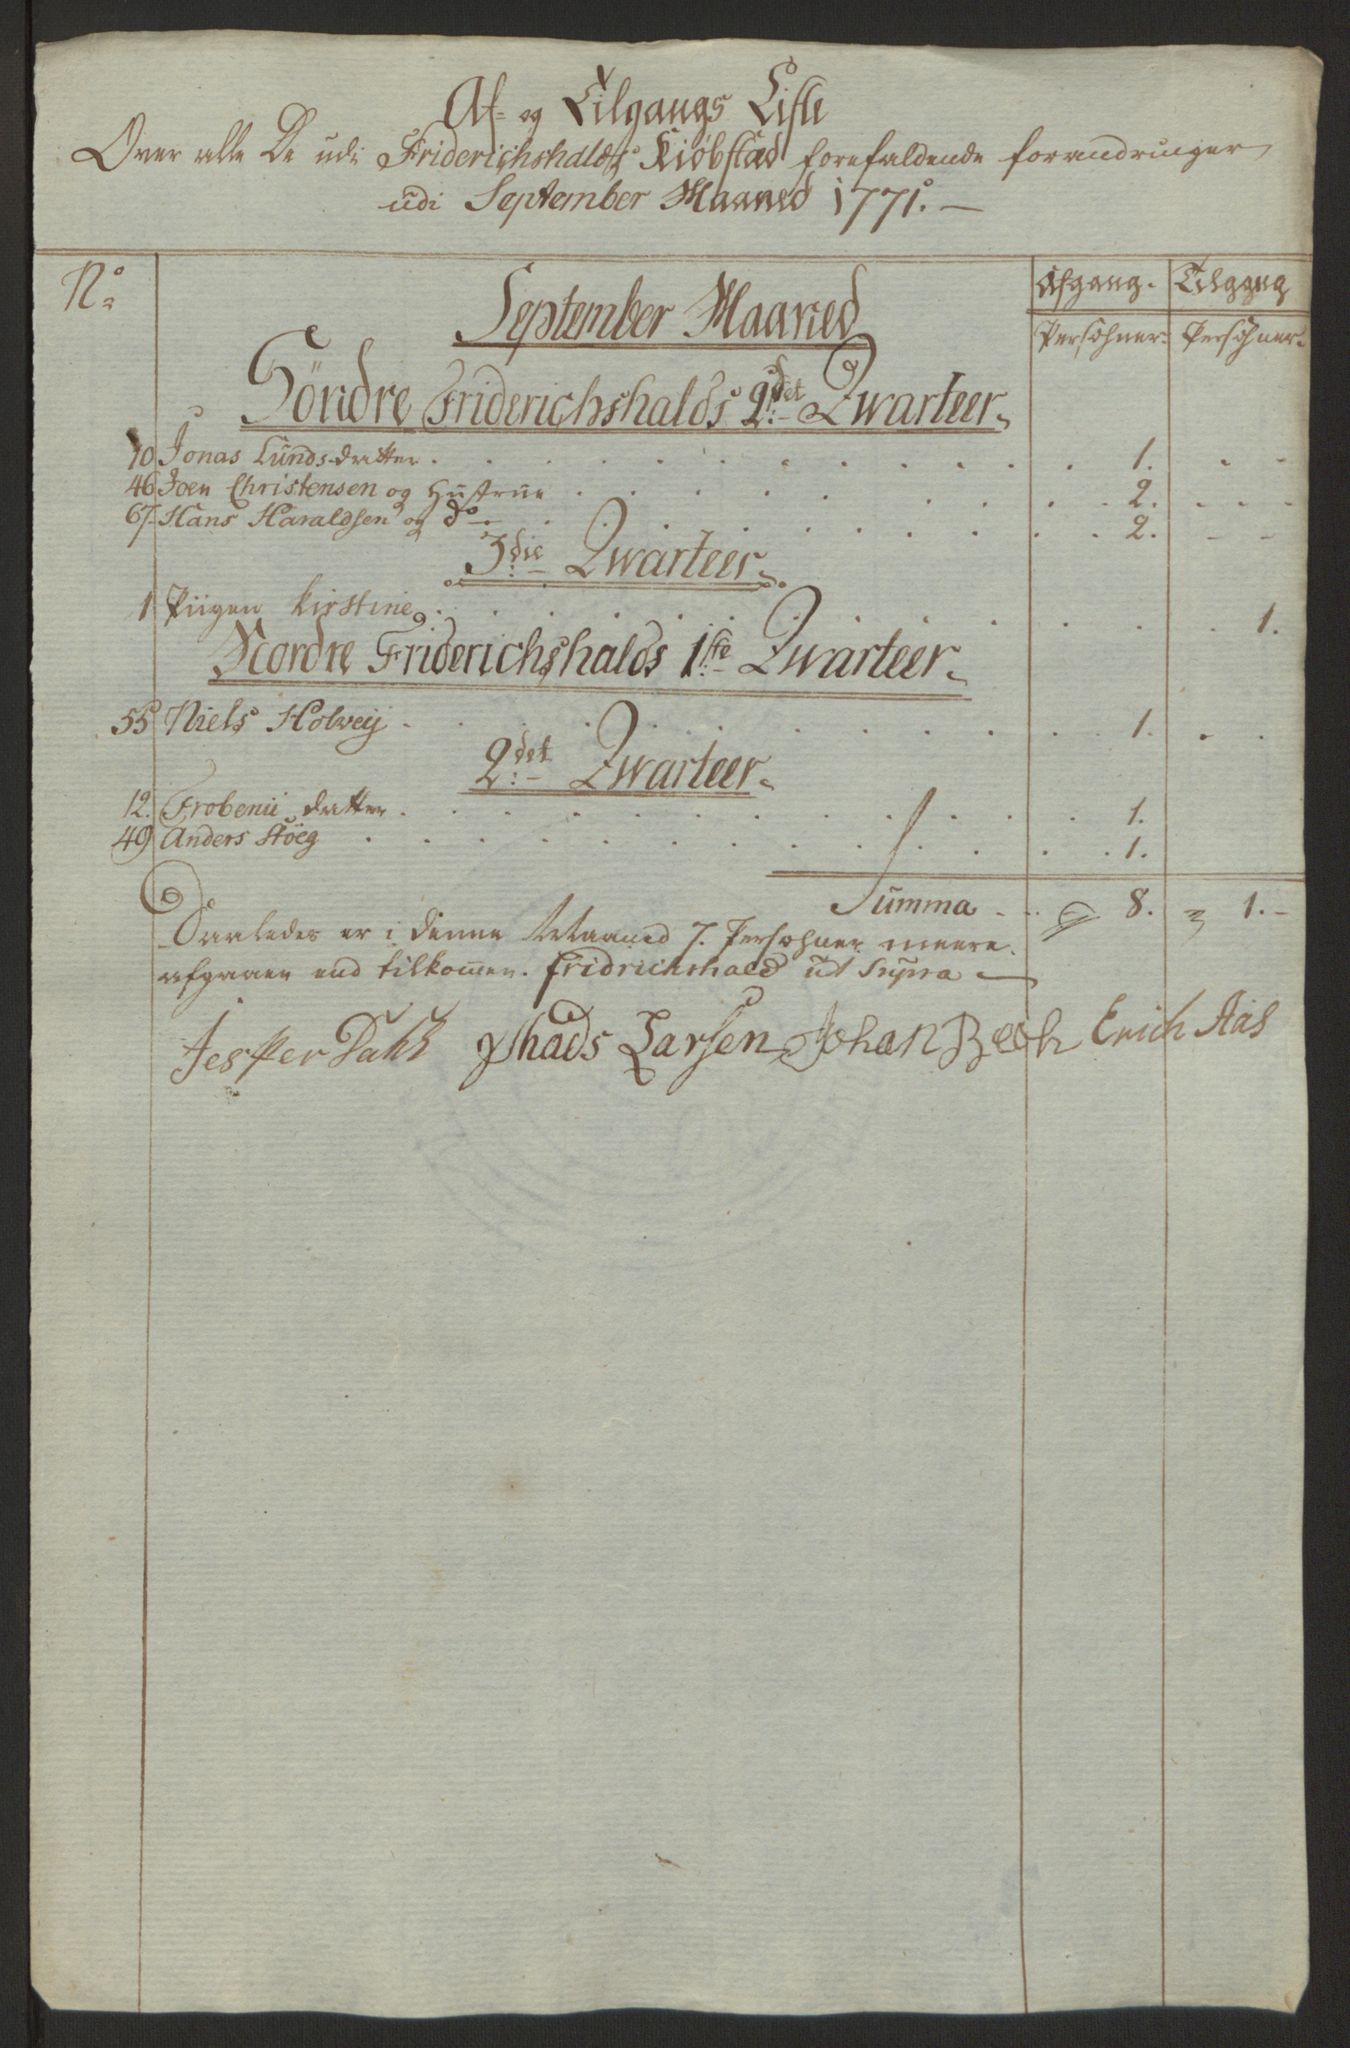 Af- og Tilgangs Liste
Over alle De udi Friderichshalds Kiöbstæd forefaldende forandringer
udi September Maaned 1771. —
No September Maaned Afgang. Tilgang
Persohner. Persohner.
Söndre Friderichshalds 2det Qwarteer.
10 Jonas Lunds datter . . . 1. - -
46 Joen Christensen og Hustrue . . . 2. . . .
67 Hans Haraldsen og do . . . 2. - -
3die Qwarteer.
1 Piigen Kirstine . . . 1.
Nordre Friderichshalds 1ste Qwarteer.
55 Niels Holveij . . . 1. . .
2det Qwarteer.
12. Frobenii datter . . . 1.
49 Anders Stöeg . . . 1.
Summa 8. 1.-
Saaledes er i denne Maaned 7. Persohner meere
afgaaen end tilkommen. Fridrichshald ut Supra
Jesper Dahl Mads Larsen Johan Beck Erich Aas